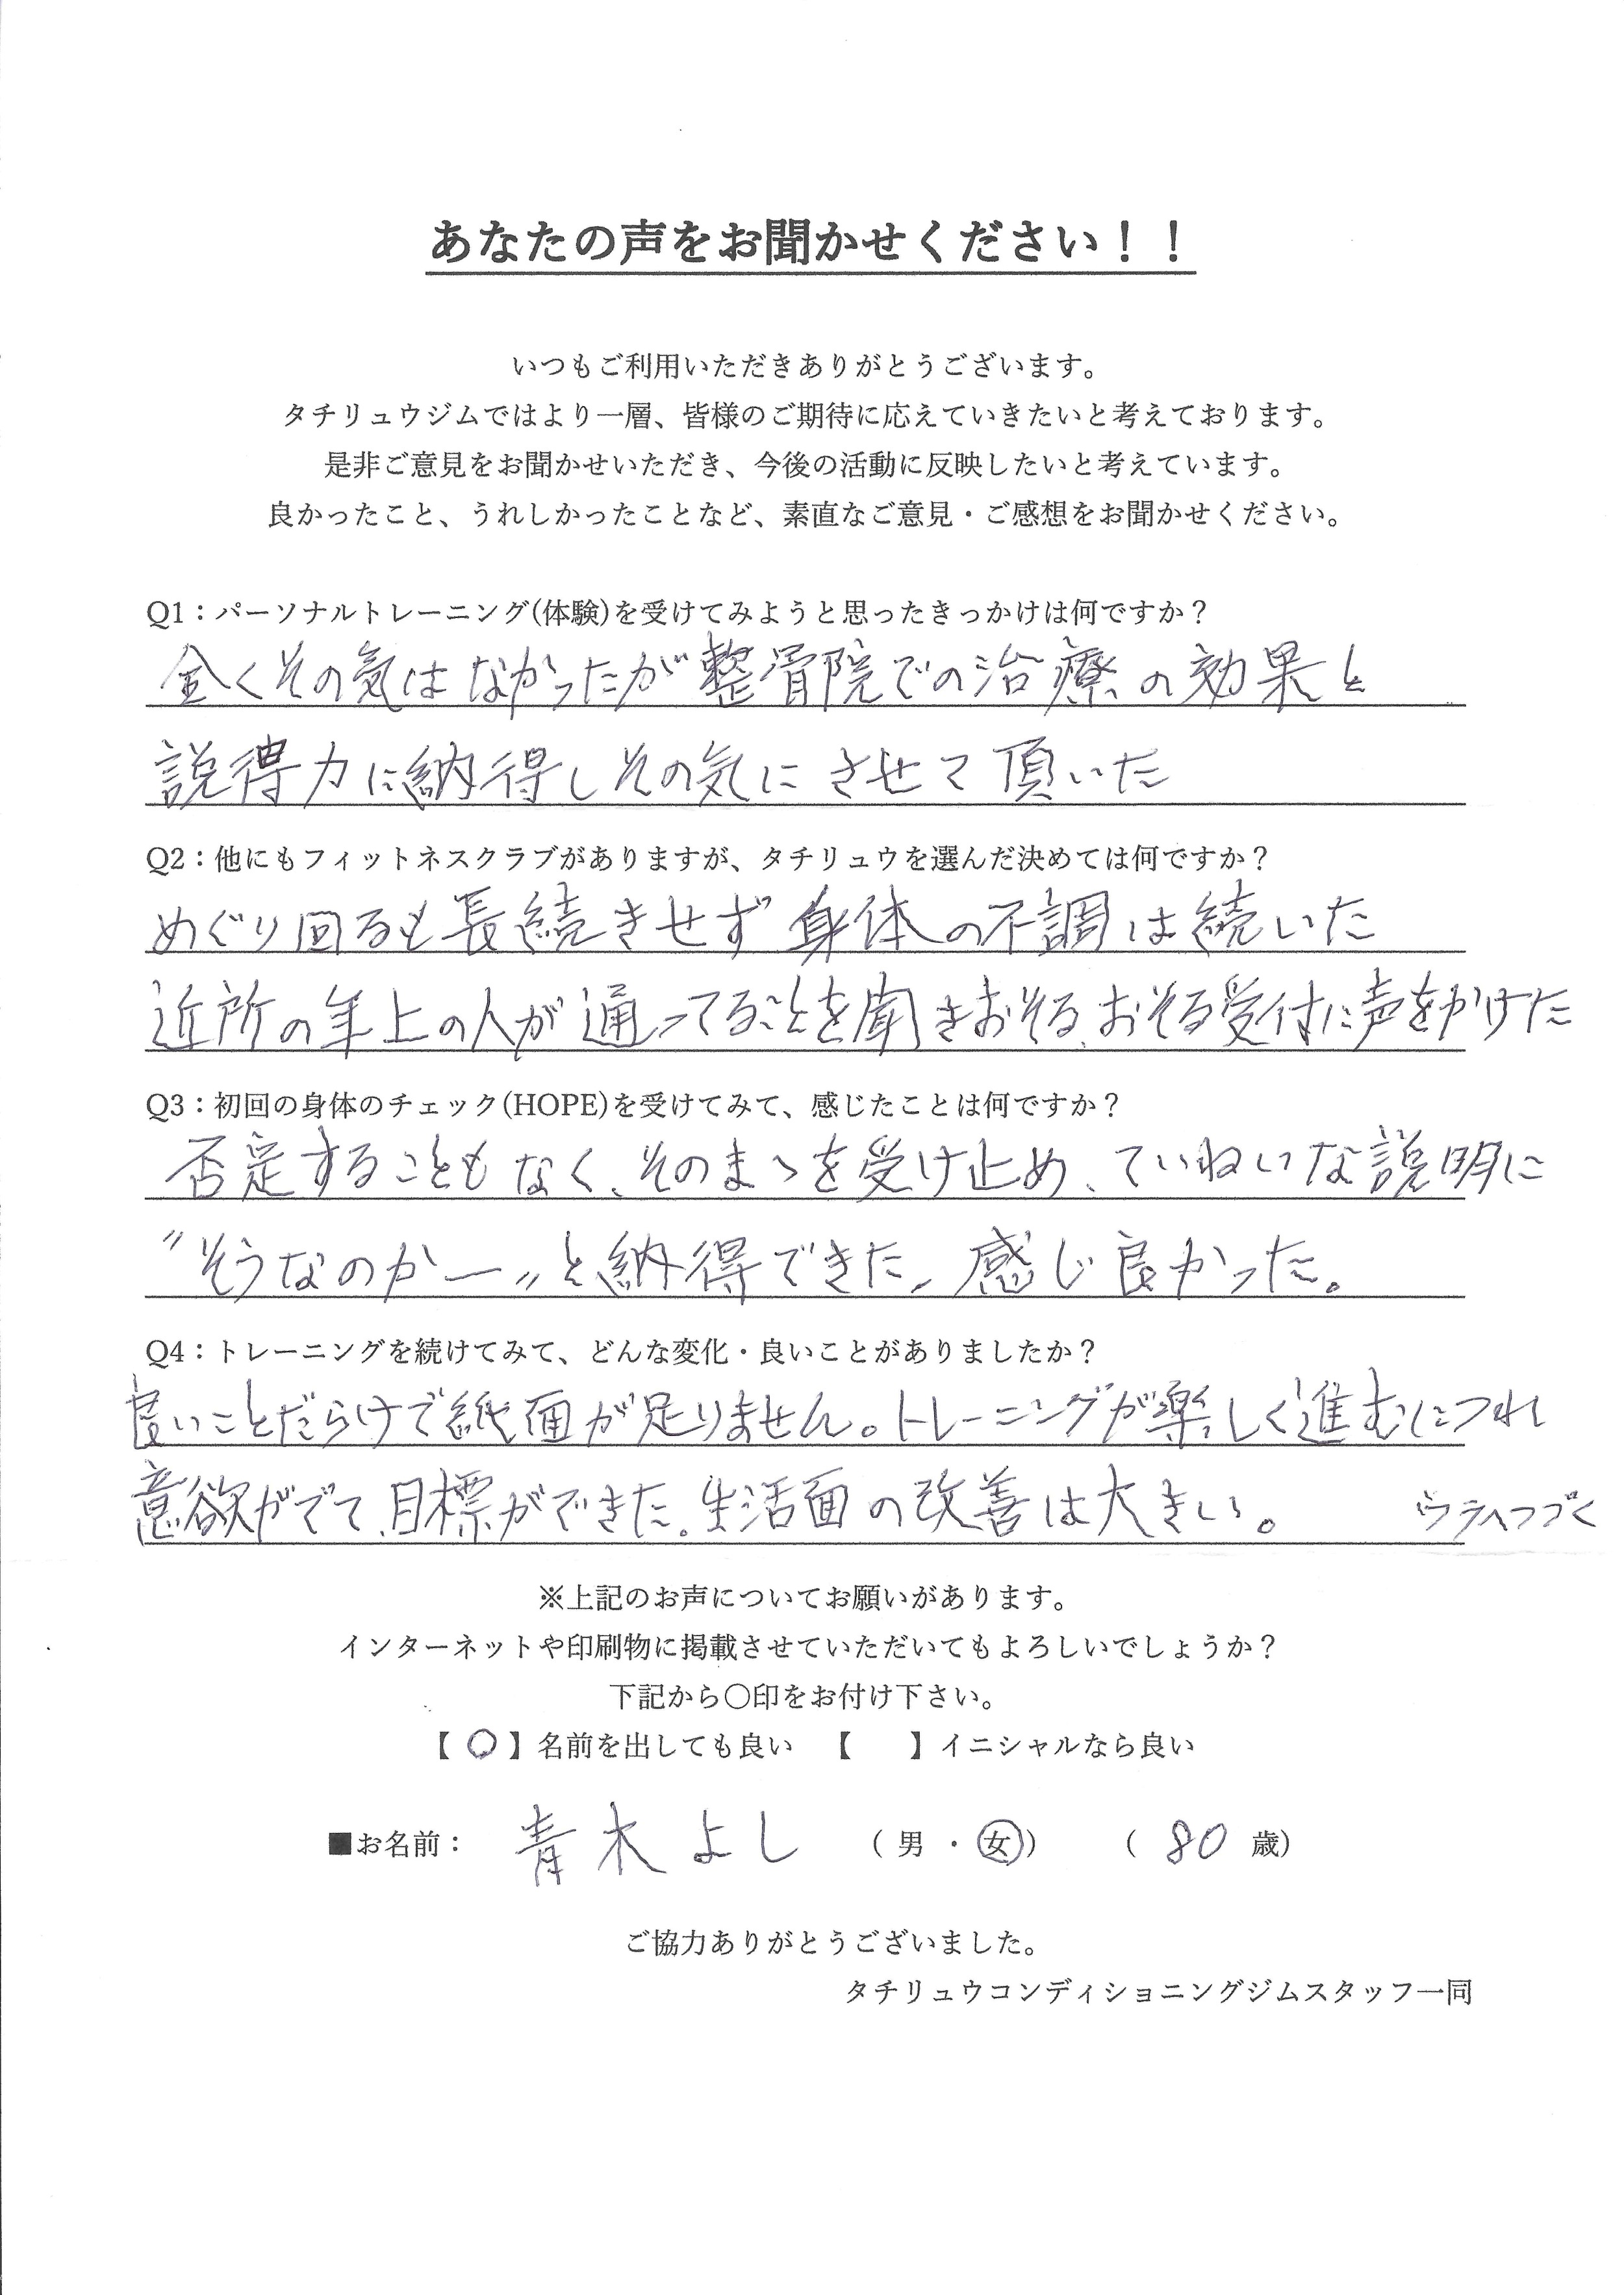 あなたの声をお聞かせください！！
いつもご利用いただきありがとうございます。
タチリュウジムではより一層、皆様のご期待に応えていきたいと考えております。
是非ご意見をお聞かせいただき、今後の活動に反映したいと考えています。
良かったこと、うれしかったことなど、素直なご意見・ご感想をお聞かせください。
Q1：パーソナルトレーニング(体験)を受けてみようと思ったきっかけは何ですか？
全くその気はなかったが整骨院での治療の効果と
説得力に納得しその気にさせて頂いた
Q2：他にもフィットネスクラブがありますが、タチリュウを選んだ決めては何ですか？
めぐり回るも長続きせず身体の不調は続いた
近所の年上の人が通ってることを聞きおそるおそる受付に声をかけた
Q3：初回の身体のチェック(HOPE)を受けてみて、感じたことは何ですか？
否定することもなく、そのまゝを受け止め、ていねいな説明に
〝そうなのかー〟と納得できた、感じ良かった。
Q4：トレーニングを続けてみて、どんな変化・良いことがありましたか？
良いことだらけで紙面が足りません。トレーニングが楽しく進むにつれ
意欲がでて、目標ができた。生活面の改善は大きい。 ウラへつづく
※上記のお声についてお願いがあります。
インターネットや印刷物に掲載させていただいてもよろしいでしょうか？
下記から〇印をお付け下さい。
【 〇 】名前を出しても良い 【　　】イニシャルなら良い
■お名前： 青木よし （ 男 ・ 女） （ 80 歳）
ご協力ありがとうございました。
タチリュウコンディショニングジムスタッフ一同